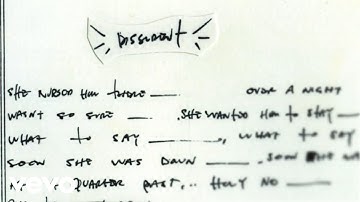 DISSIDENT
SHE NURSED HIM THERE — OVER A NIGHT
WASN'T SO SURE — . SHE WANTED HIM TO STAY —
WHAT TO SAY — , WHAT TO SAY
SOON SHE WAS DOWN — . SOON SHE WAS
QUARTER PAST... HOLY NO —
vevo